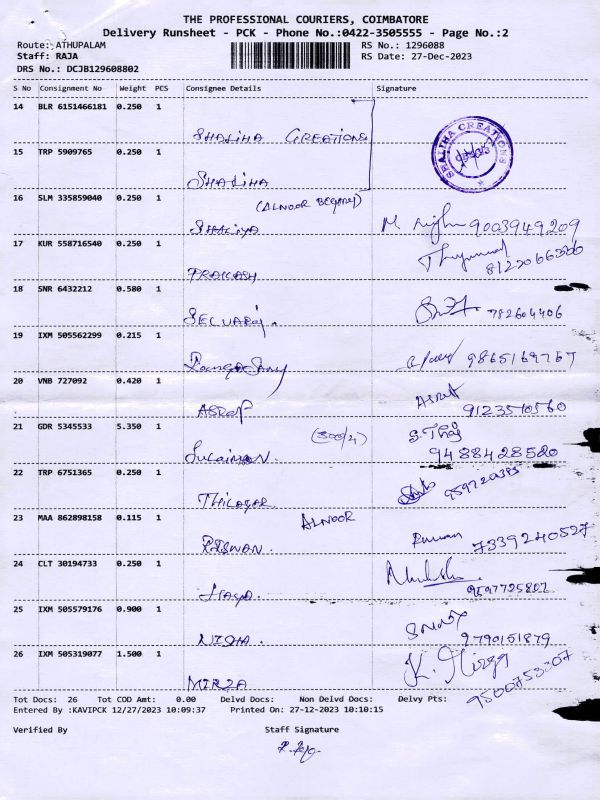 THE PROFESSIONAL COURIERS, COIMBATORE
Delivery Runsheet - PCK - Phone No.:0422-3505555 - Page No.:2
Route: ATHUPALAM RS No.: 1296088
Staff: RAJA RS Date: 27-Dec-2023
DRS No.: DCJB129608802
S No Consignment No Weight PCS Consignee Details Signature
14 BLR 6151466181 0.250 1
SHALIHA CREATIONS
SHALIHA CREATIONS
15 TRP 5909765 0.250 1
SHALIHA
16 SLM 335859040 0.250 1
(ALNOOR
9003949209
17 KUR 558716540 0.250 1
PRAKASH
8122066366
18 SNR 6432212 0.580 1
SELVARAJ.
982604406
19 IXM 505562299 0.215 1
9865169767
20 VNB 727092 0.420 1
ASRAF
Asraf
9123510560
21 GDR 5345533 5.350 1
(300/2)
SULAIMAN.
S.Thaj
9488428520
22 TRP 6751365 0.250 1
THILAGAR
23 MAA 862898158 0.115 1
ALNOOR
RISWAN.
7339240527
24 CLT 30194733 0.250 1
9597725807
25 IXM 505579176 0.900 1
NISHA.
9790151879
26 IXM 505319077 1.500 1
MIRZA
K. Mirza
9500753307
Tot Docs: 26 Tot COD Amt: 0.00 Delvd Docs: Non Delvd Docs: Delvy Pts:
Entered By :KAVIPCK 12/27/2023 10:09:37 Printed On: 27-12-2023 10:10:15
Verified By Staff Signature